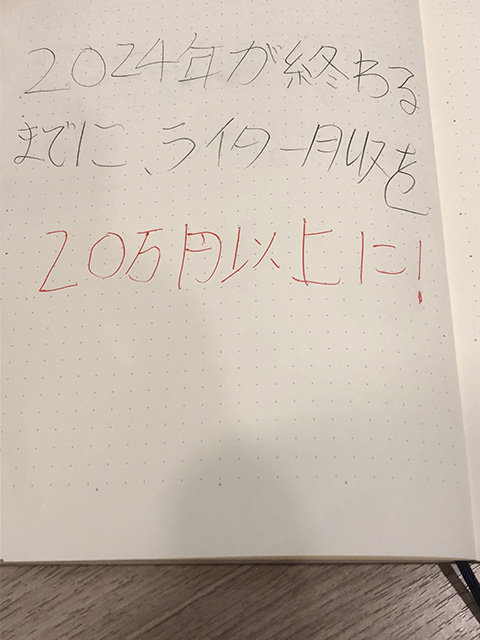 2024年が終わる
までに、ライター月収を
20万円以上に!